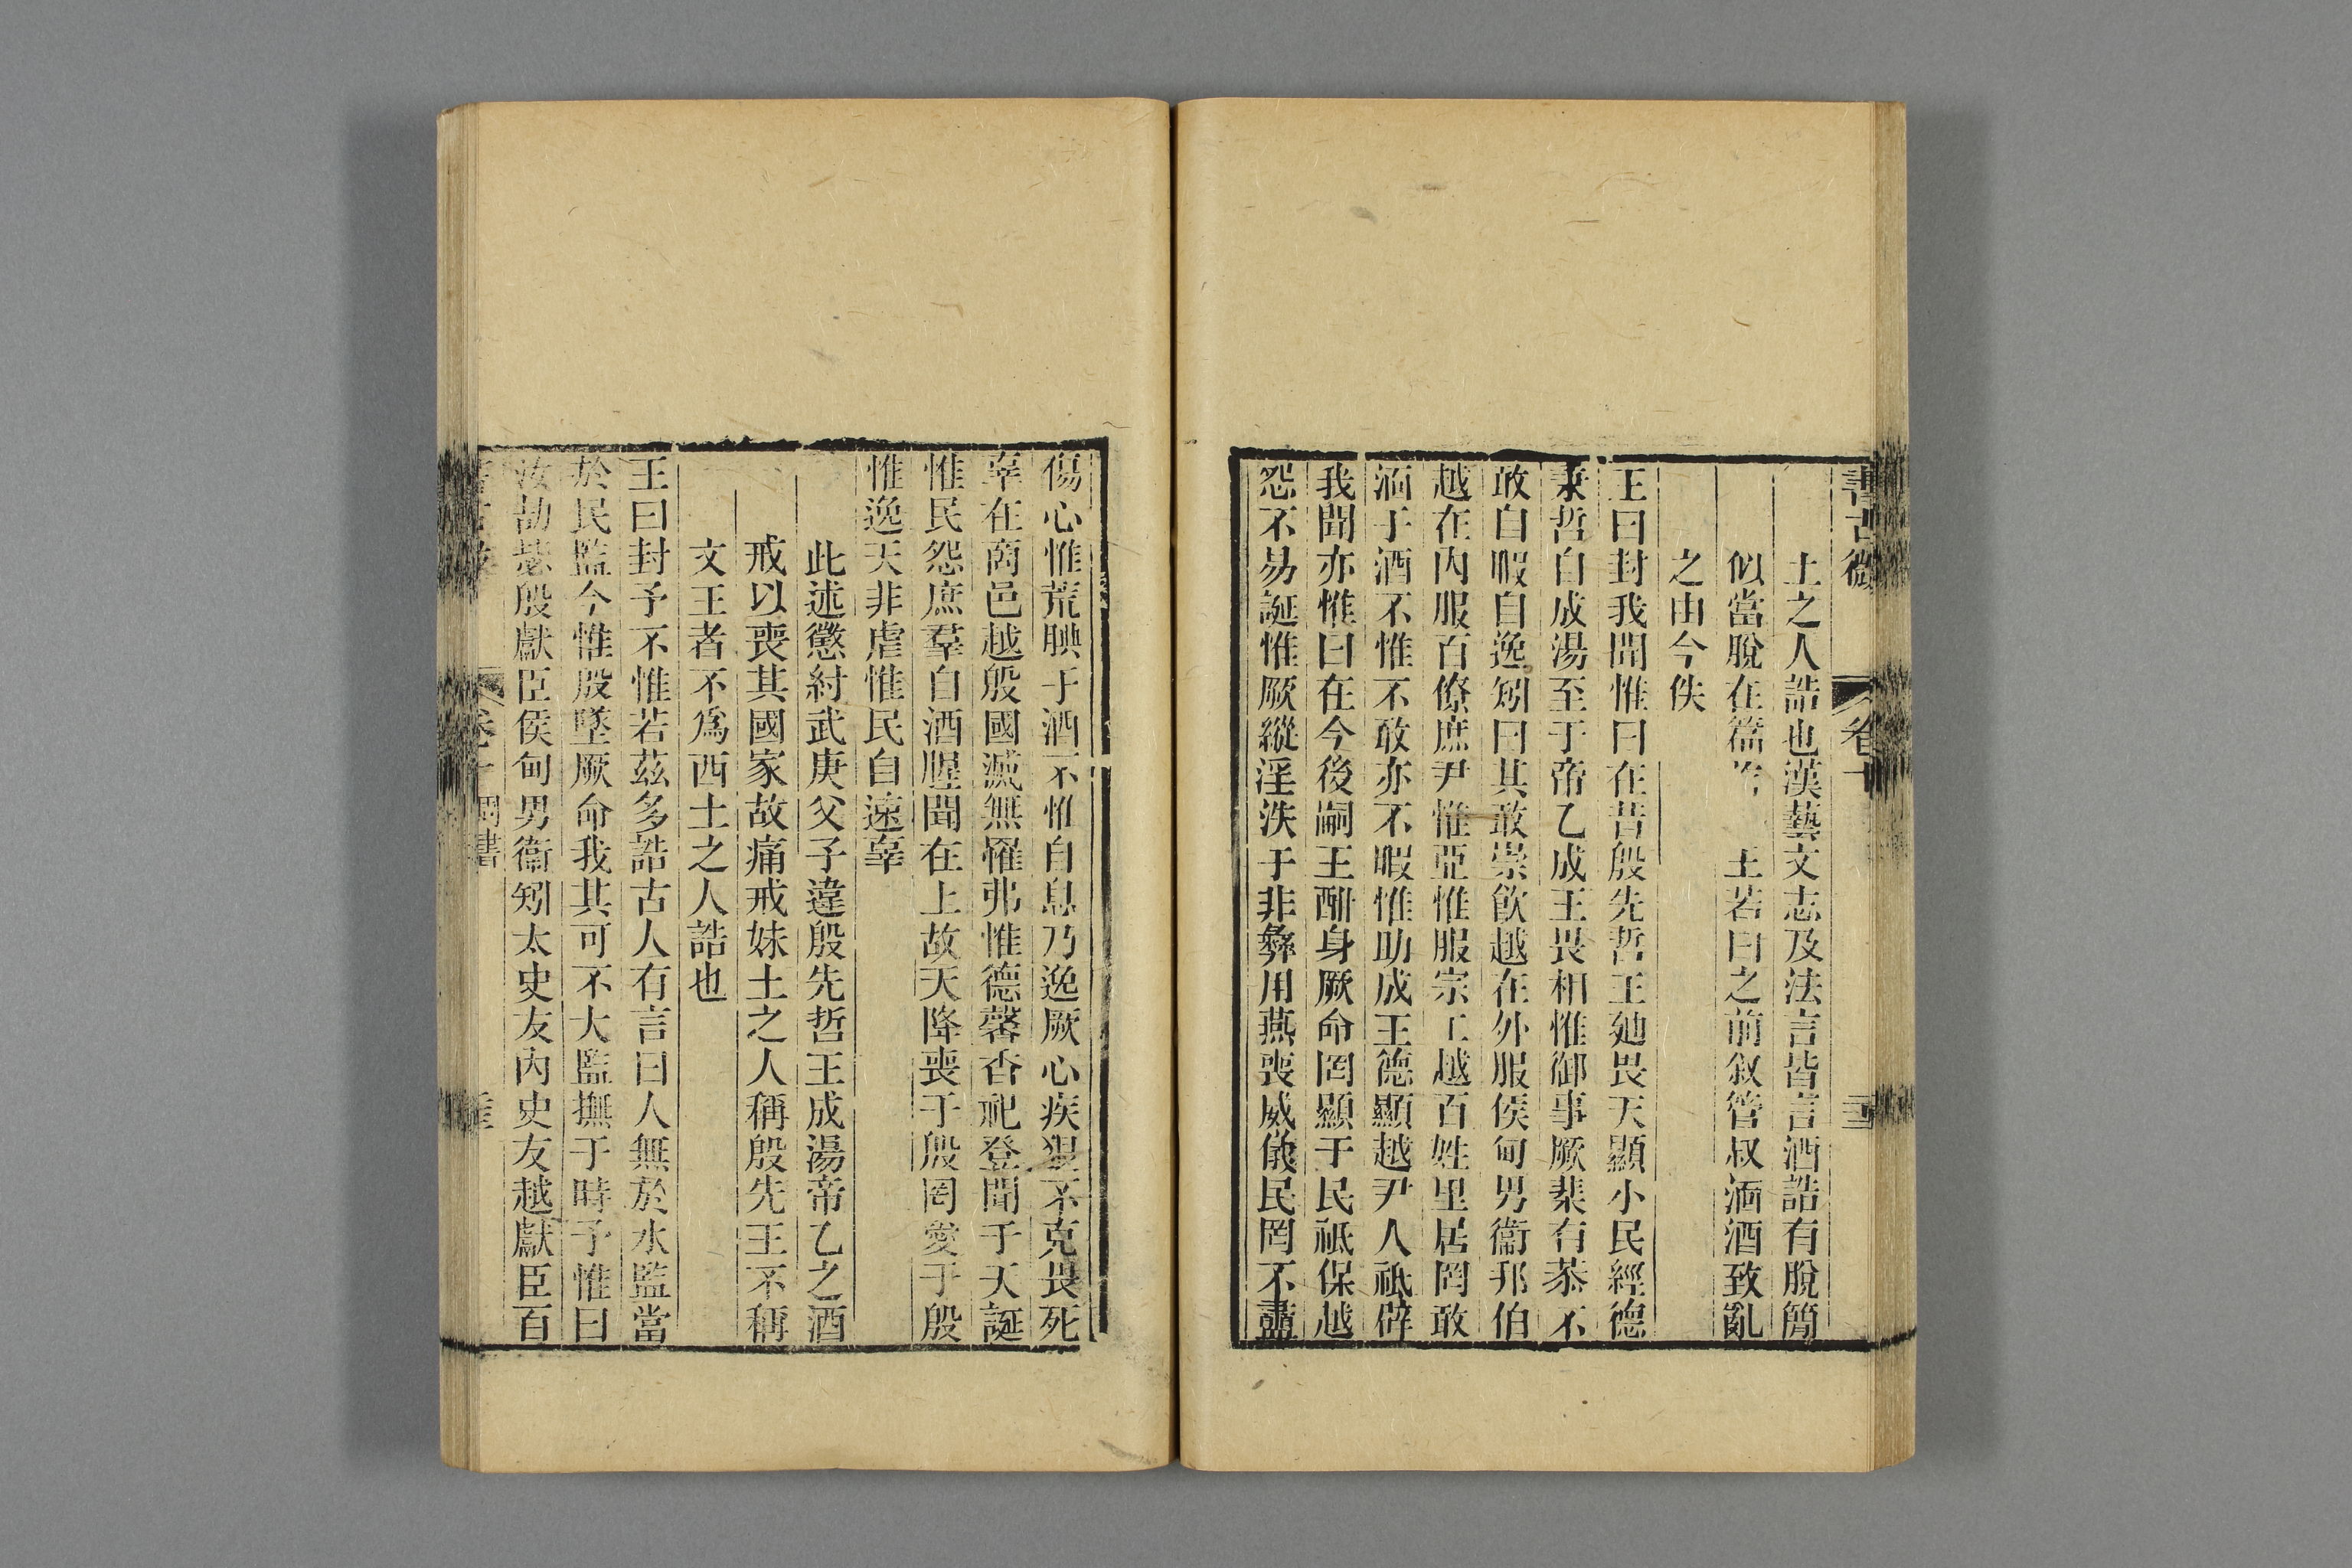 書古微 卷十 三
土之人誥也漢藝文志及法言皆言酒誥有脫簡
似當脫在篇 王若曰之前叙管叔湎酒致亂
之由今佚
王曰封我聞惟曰在昔殷先哲王廸畏天顯小民經德
秉哲自成湯至于帝乙成王畏相惟御事厥棐有恭不
敢自暇自逸矧曰其敢崇飮越在外服侯甸男衞邦伯
越在內服百僚庶尹惟亞惟服宗工越百姓里居罔敢
湎于酒不惟不敢亦不暇惟助成王德顯越尹人祗辟
我聞亦惟曰在今後嗣王酣身厥命罔顯于民祗保越
怨不易誕惟厥縱淫泆于非彝用燕喪威儀民罔不衋
傷心惟荒腆于酒不惟自息乃逸厥心疾狠不克畏死
辜在商邑越殷國滅無罹弗惟德馨香祀登聞于天誕
惟民怨庶羣自酒腥聞在上故天降喪于殷罔愛于殷
惟逸天非虐惟民自速辜
此述懲紂武庚父子違殷先哲王成湯帝乙之酒
戒以喪其國家故痛戒妹土之人稱殷先王不稱
文王者不爲西土之人誥也
王曰封予不惟若茲多誥古人有言曰人無於水監當
於民監今惟殷墜厥命我其可不大監撫于時予惟曰
汝劼毖殷獻臣侯甸男衞矧太史友內史友越獻臣百
卷十 周書